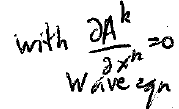 with ∂A^k/∂x^k=0
Wave eqn